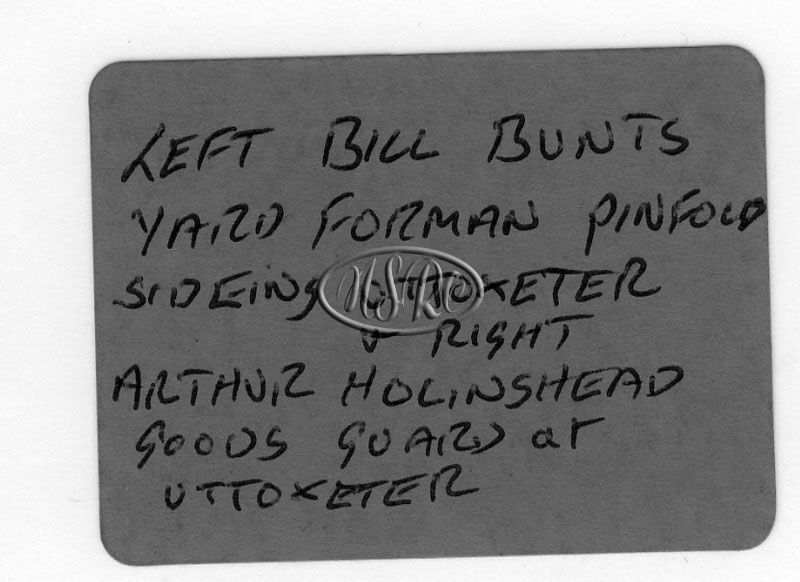 LEFT BILL BUNTS
YARD FORMAN PINFOLD
SIDEINg UTTOXETER
& RIGHT
ARTHUR HOLINSHEAD
GOODS GUARD at
UTTOXETER
NSRC